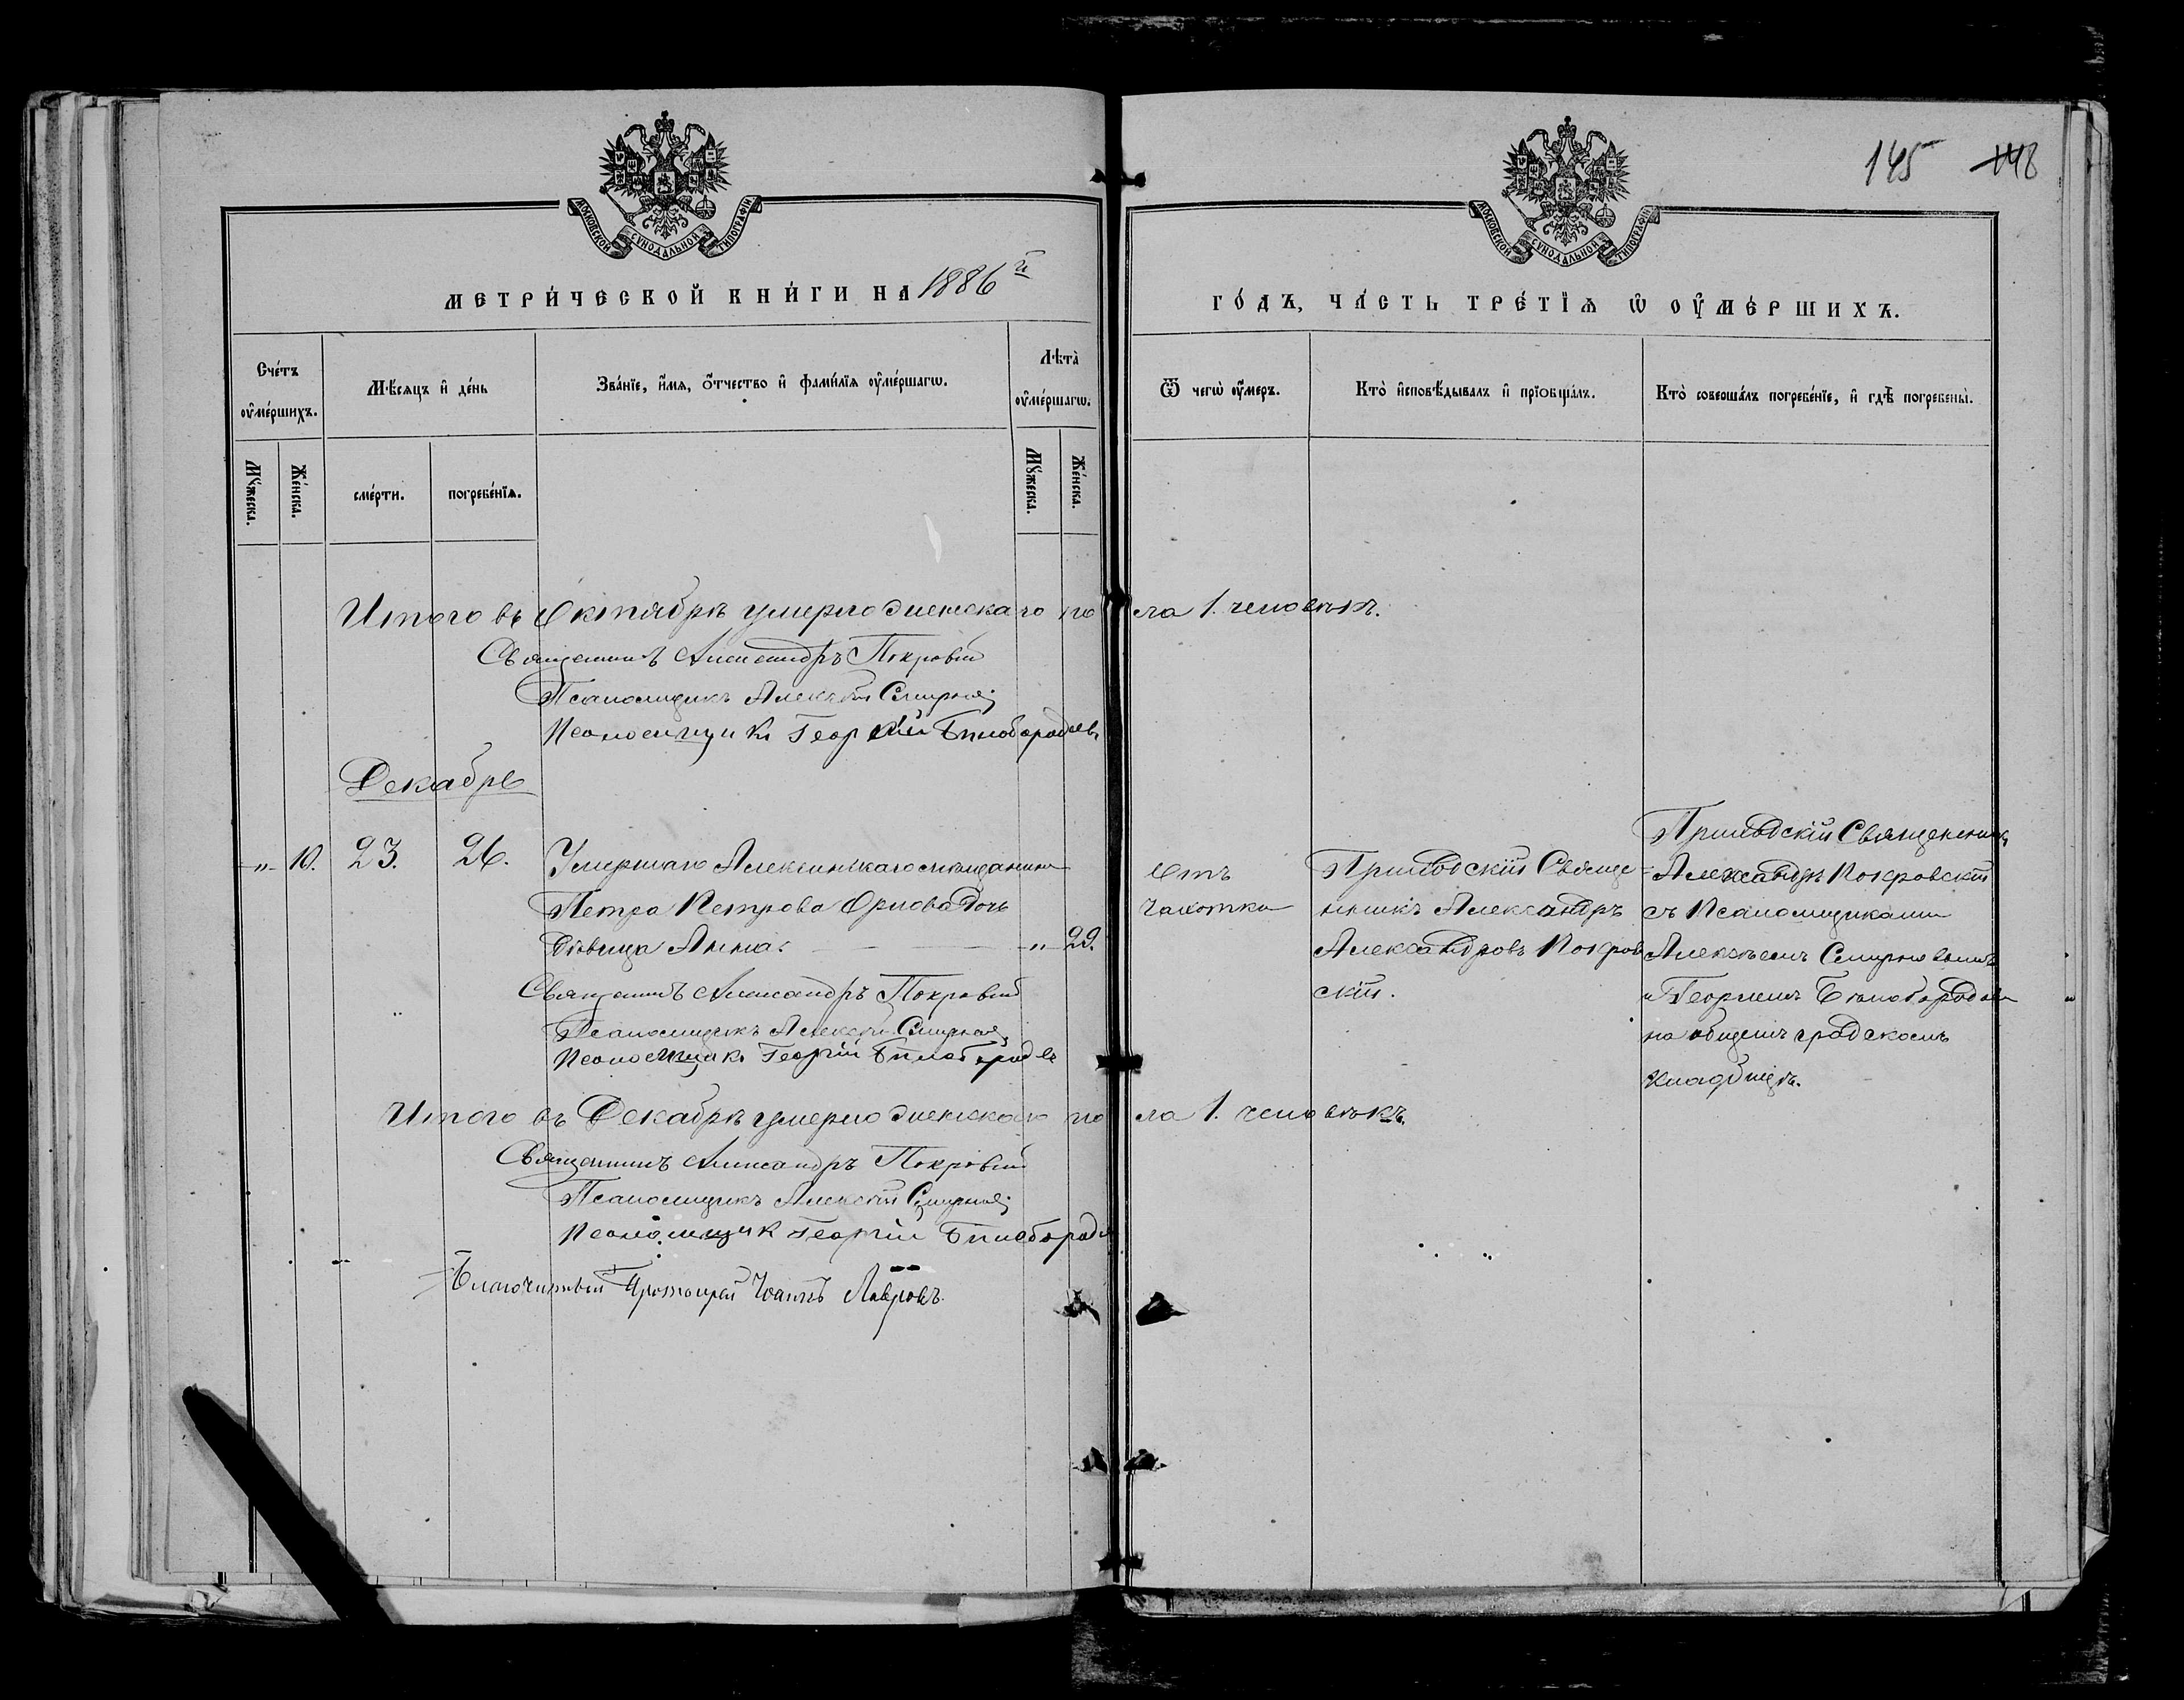 145 148
МОСКОВСКОЙ СѴНОДАЛЬНОЙ ТИПОГРАФІИ
МОСКОВСКОЙ СѴНОДАЛЬНОЙ ТИПОГРАФІИ
МЕТРИ́ЧЕСКОЙ КНИ́ГИ НА 1886й
ГО́ДЪ, ЧА́СТЬ ТРЕ́ТІѦ Ѡ ОУ҆МЕ́РШИХЪ.
Сче́тъ оу҆ме́ршихъ.
Мѣ́сяцъ и҆ де́нь
Зва́нїе, и҆́мя, ѻ҆́тчество и҆ фами́лїя оу҆ме́ршагѡ.
Лѣ́та̀ оу҆ме́ршагѡ.
Ѿ чегѡ̀ оу҆́меръ.
Кто̀ и҆сповѣ́дывалъ и҆ прїобща́лъ.
Кто̀ соверша́лъ погребе́нїе, и҆ гдѣ̀ погребены̀.
Мꙋ́жеска.
Же́нска.
сме́рти.
погребе́нїѧ.
Мꙋ́жеска.
Же́нска.
Итого въ Октябрѣ умерло женскаго пола 1. человѣкъ.
Священникъ Александръ Покровскій
Псаломщикъ Алексѣй Смирновъ
Псаломщикъ Георгій Бѣлобородовъ
Декабрь
„ 10. 23. 26. Умершаго Алексинскаго мѣщанина
Петра Петрова Орлова дочь
дѣвица Анна. „ 29.
Отъ
чахотки
Приходскій Свяще-
нникъ Александръ
Александровъ Покров
скій.
Приходскій Священникъ
Александръ Покровскій
съ Псаломщиками
Алексѣемъ Смирновымъ
и Георгіемъ Бѣлобородовымъ
на общемъ градскомъ
кладбищѣ.
Священникъ Александръ Покровскій
Псаломщикъ Алексѣй Смирновъ
Псаломщикъ Георгій Бѣлобородовъ
Итого въ Декабрѣ умерло женскаго пола 1. человѣкъ.
Священникъ Александръ Покровскій
Псаломщикъ Алексѣй Смирновъ
Псаломщикъ Георгій Бѣлобородовъ
Благочинный Протоіерей Іоаннъ Лавровъ.